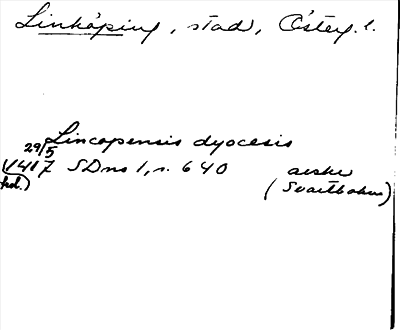 Linköping, stad, Österg. l.
Lincopensis dyocesis
29/5
1417 SDns 1, s. 640 avskr
(hol.) (Svartboken)